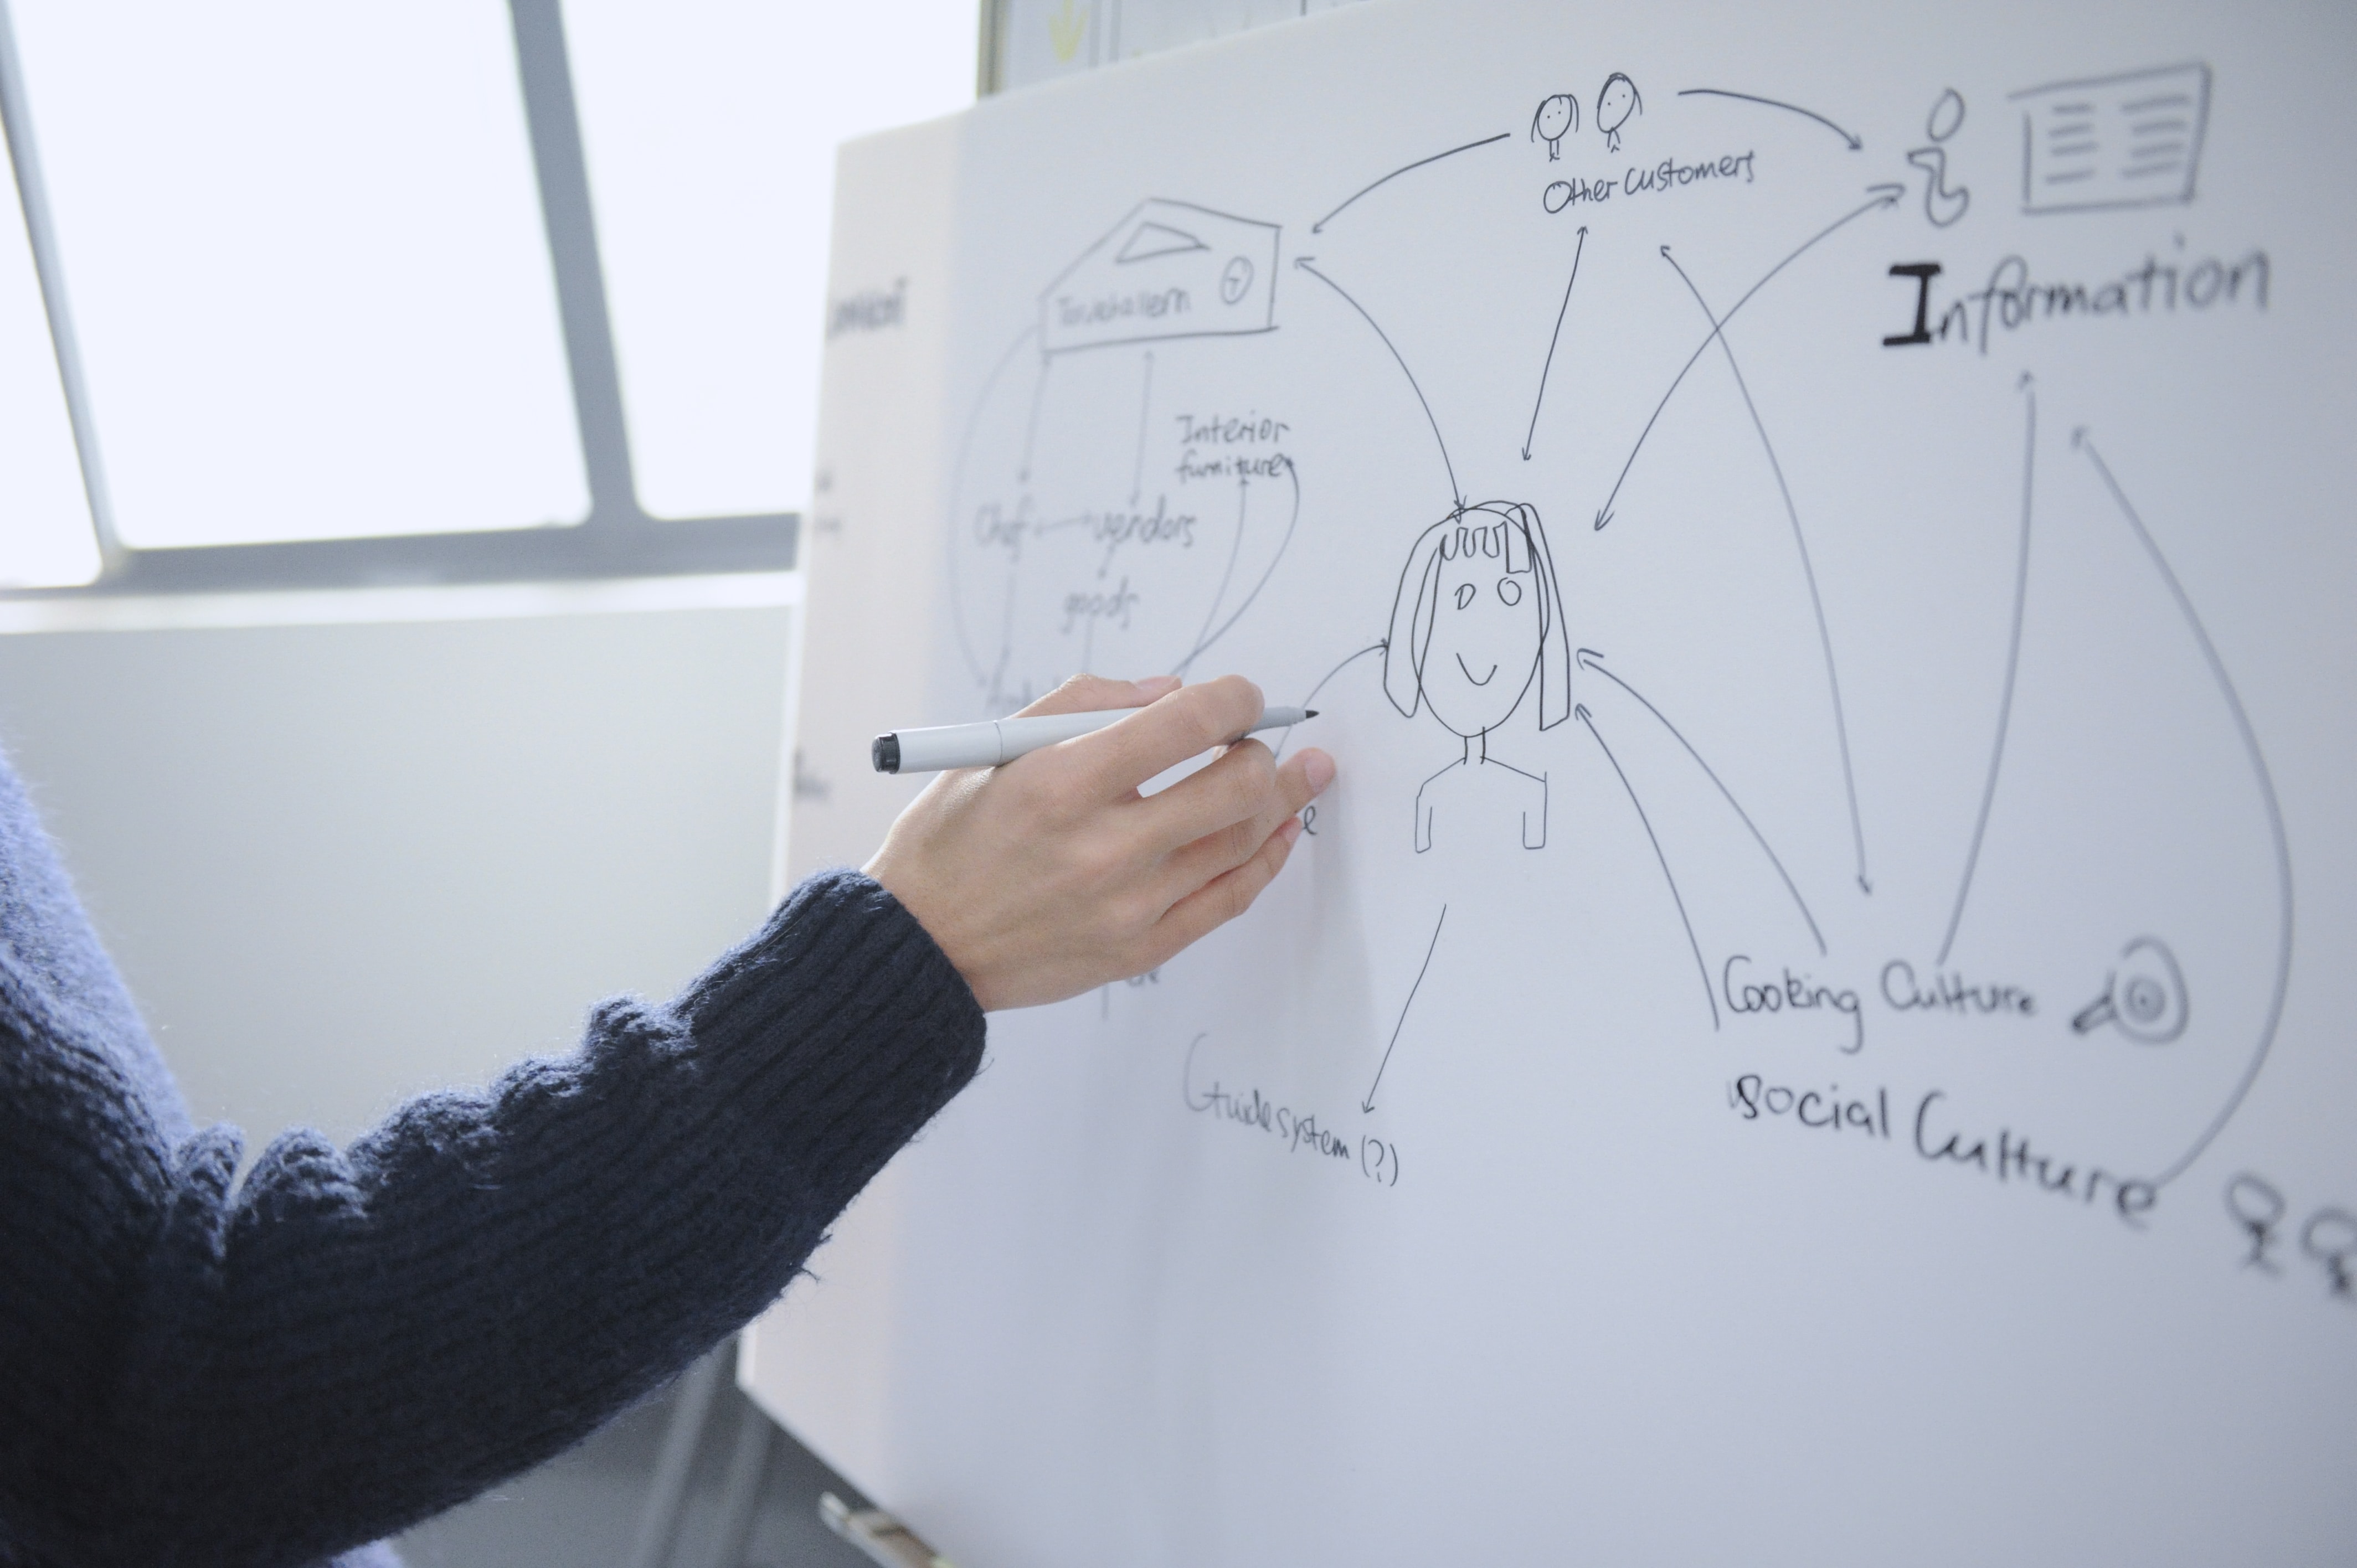 Other customers
Information
Interior
furniture
Chef
vendors
goods
Guide system (?)
Cooking Culture
Social Culture